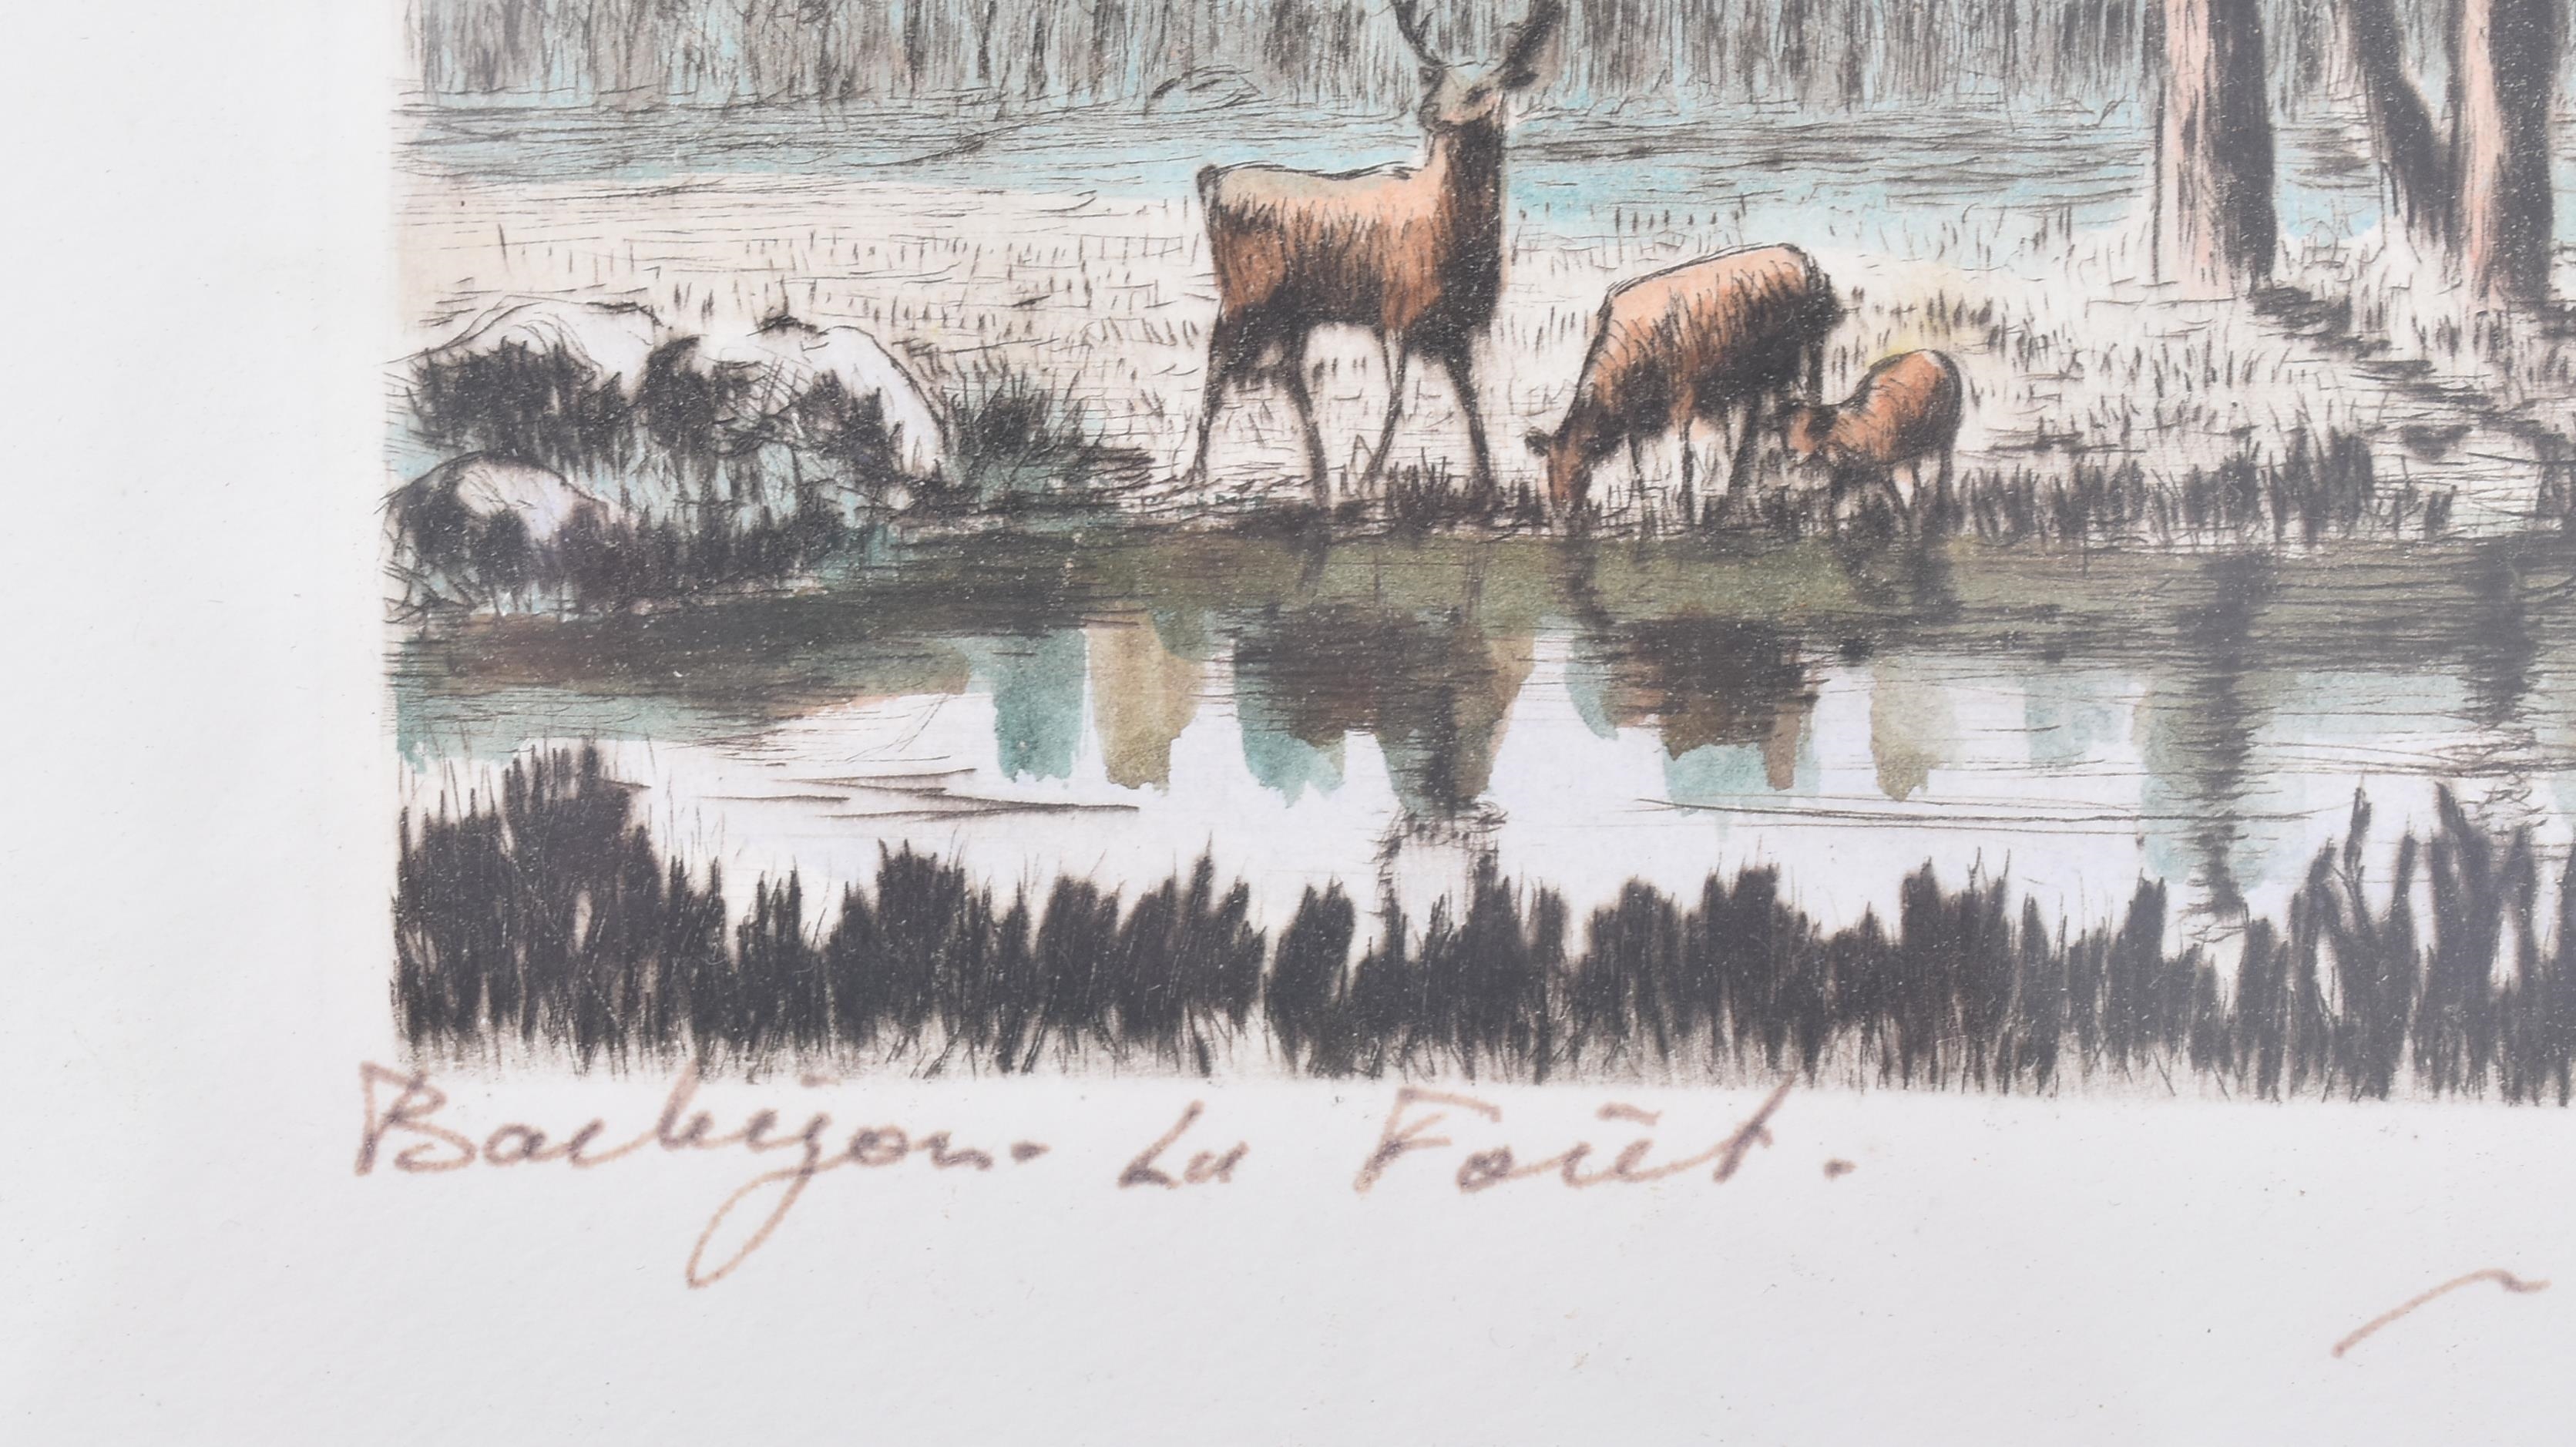 Barbizon. La Forêt.